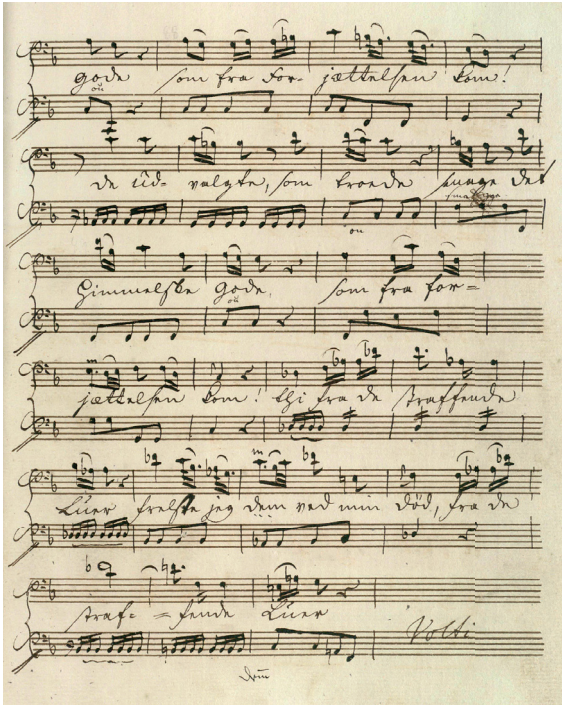 gode som fra For- jættelsen kom!
de ud- valgte, som troede smage det
himmelske gode, som fra for=
jættelsen kom! thi fra de straffende
Luer frelste jeg dem ved min død, fra de
straf= =fende Luer
Volti